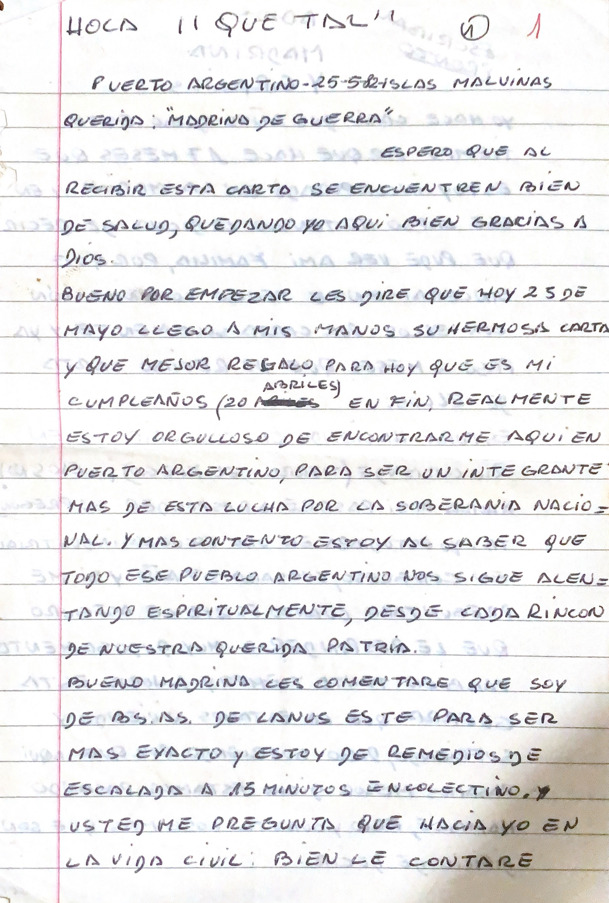 HOLA ¡¡ QUE TAL" ① 1
PUERTO ARGENTINO-25-5-82-ISLAS MALVINAS
QUERIDA: "MADRINA DE GUERRA"
ESPERO QUE AL
RECIBIR ESTA CARTA SE ENCUENTREN BIEN
DE SALUD, QUEDANDO YO AQUI BIEN GRACIAS A
DIOS.
BUENO POR EMPEZAR LES DIRE QUE HOY 25 DE
MAYO LLEGO A MIS MANOS SU HERMOSA CARTA
Y QUE MEJOR REGALO PARA HOY QUE ES MI
CUMPLEAÑOS (20 ABRILES) EN FIN, REALMENTE
ESTOY ORGULLOSO DE ENCONTRARME AQUI EN
PUERTO ARGENTINO, PARA SER UN INTEGRANTE
MAS DE ESTA LUCHA POR LA SOBERANIA NACIO=
NAL. Y MAS CONTENTO ESTOY AL SABER QUE
TODO ESE PUEBLO ARGENTINO NOS SIGUE ALEN=
TANDO ESPIRITUALMENTE, DESDE CADA RINCON
DE NUESTRA QUERIDA PATRIA.
BUENO MADRINA LES COMENTARE QUE SOY
DE BS. AS. DE LANUS ESTE PARA SER
MAS EXACTO Y ESTOY DE REMEDIOS DE
ESCALADA A 15 MINUTOS EN COLECTIVO. Y
USTED ME PREGUNTA QUE HACIA YO EN
LA VIDA CIVIL: BIEN LE CONTARE